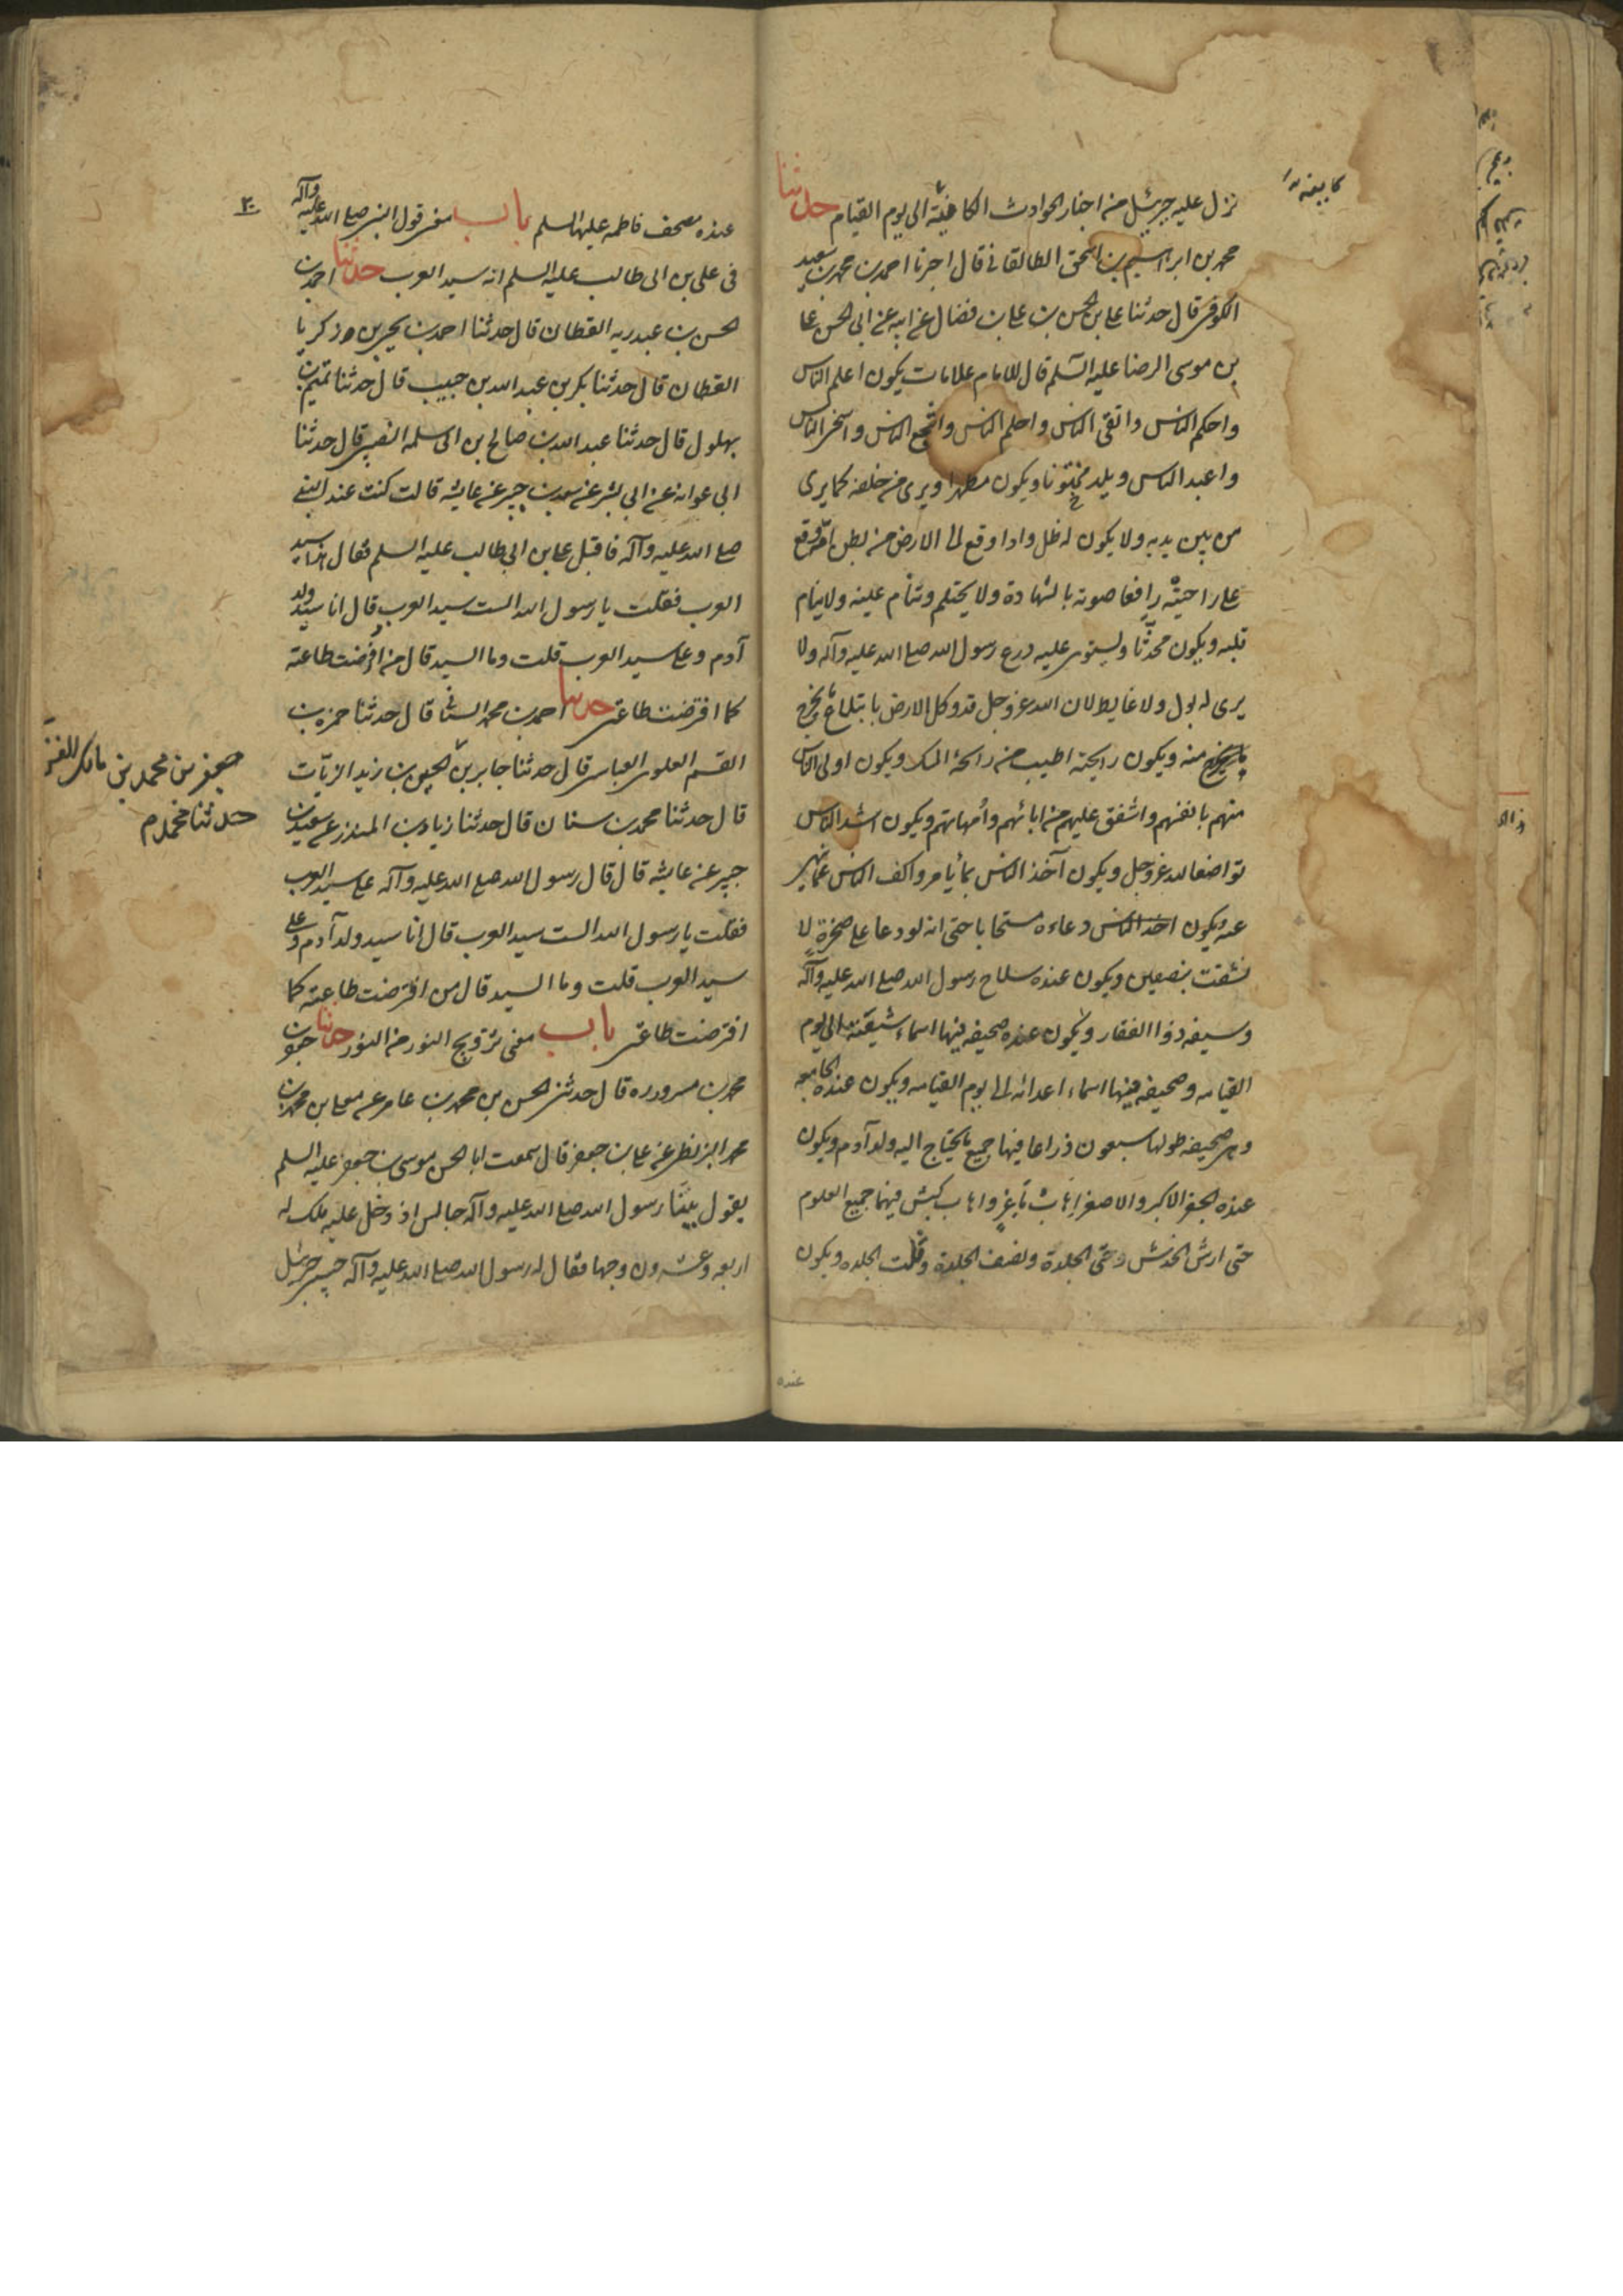 نزل عليه جبرئيل من اخبار الحوادث الكائنة الى يوم القيام حدثنا
محمد بن ابراهيم بن اسحق الطالقاني قال اخبرنا احمد بن محمد بن سعيد
الكوفي قال حدثنا علي بن الحسن بن علي بن فضال عن ابيه عن ابي الحسن علي
بن موسى الرضا عليه السلم قال للامام علامات يكون اعلم الناس
واحكم الناس واتقى الناس واحلم الناس واشجع الناس واسخى الناس
واعبد الناس ويلد مختونا ويكون مطهرا ويرى من خلفه كما يرى
من بين يديه ولا يكون له ظل واذا وقع الى الارض من بطن امه وقع
على راحتيه رافعا صوته بالشهادة ولا يحتلم وتنام عينه ولا ينام
قلبه ويكون محدثا ويستوي عليه درع رسول الله صلى الله عليه وآله ولا
يرى له بول ولا غايط لان الله عز وجل قد وكل الارض بابتلاع ما يخرج
منه ويكون رايحته اطيب من رائحة المسك ويكون اولى الناس
منهم بانفسهم واشفق عليهم من ابائهم وأمهاتهم ويكون اشد الناس
تواضعا لله عز وجل ويكون آخذ الناس بما يأمر واكف الناس عما ينهى
عنه ويكون دعاءه مستجابا حتى انه لو دعا على صخرة لا
نشقت بنصفين ويكون عنده سلاح رسول الله صلى الله عليه وآله
وسيفه ذوا الفقار ويكون عنده صحيفه فيها اسماء شيعته الى يوم
القيامه وصحيفه فيها اسماء اعدائه الى يوم القيامه ويكون عنده الجامعه
وهي صحيفه طولها سبعون ذراعا فيها جميع ما يحتاج اليه ولد آدم ويكون
عنده الجفر الاكبر والاصغر اهاب ماعز واهاب كبش فيهما جميع العلوم
حتى ارش الخدش وحتى الجلدة ونصف الجلدة وثلث الجلده ويكون
عنده
عنده مصحف فاطمه عليها السلم باب معنى قول النبي صلى الله عليه وآله
في علي بن ابى طالب عليه السلم انه سيد العرب حدثنا احمد بن
الحسن بن عبدربه القطان قال حدثنا احمد بن يحيى بن زكريا
القطان قال حدثنا بكر بن عبد الله بن حبيب قال حدثنا تميم بن
بهلول قال حدثنا عبد الله بن صالح بن ابى سلمه النصيبي قال حدثنا
ابى عوانه عن ابي بشر عن سعيد بن جبير عن عايشه قالت كنت عند النبي
صلى الله عليه وآله فاقبل علي بن ابي طالب عليه السلم فقال هذا سيد
العرب فقلت يا رسول الله الست سيد العرب قال انا سيد ولد
آدم وعلي سيد العرب قلت وما السيد قال من افترضت طاعته
كما افترضت طاعتي حدثنا احمد بن محمد السناني قال حدثنا حمزه بن
القسم العلوي العباسي قال حدثنا جعفر بن محمد بن مالك الفزاري
حدثنا محمد
بن الحسين بن زيد الزيات
قال حدثنا محمد بن سنان قال حدثنا زياد بن المنذر عن سعيد بن
جبير عن عايشه قال قال رسول الله صلى الله عليه وآله علي سيد العرب
فقلت يا رسول الله الست سيد العرب قال انا سيد ولد آدم وعلي
سيد العرب قلت وما السيد قال من افترضت طاعته كما
افترضت طاعتي باب معنى تزويج النور من النور حدثنا جعفر بن
محمد بن مسروره قال حدثني الحسن بن محمد بن عامر عن معلى بن محمد بن
محمد البزنطي عن علي بن جعفر قال سمعت ابا الحسن موسى بن جعفر عليه السلم
يقول بينا رسول الله صلى الله عليه وآله جالس اذ دخل عليه ملك له
اربعه وعشرون وجها فقال له رسول الله صلى الله عليه وآله حبيبي جبرئيل